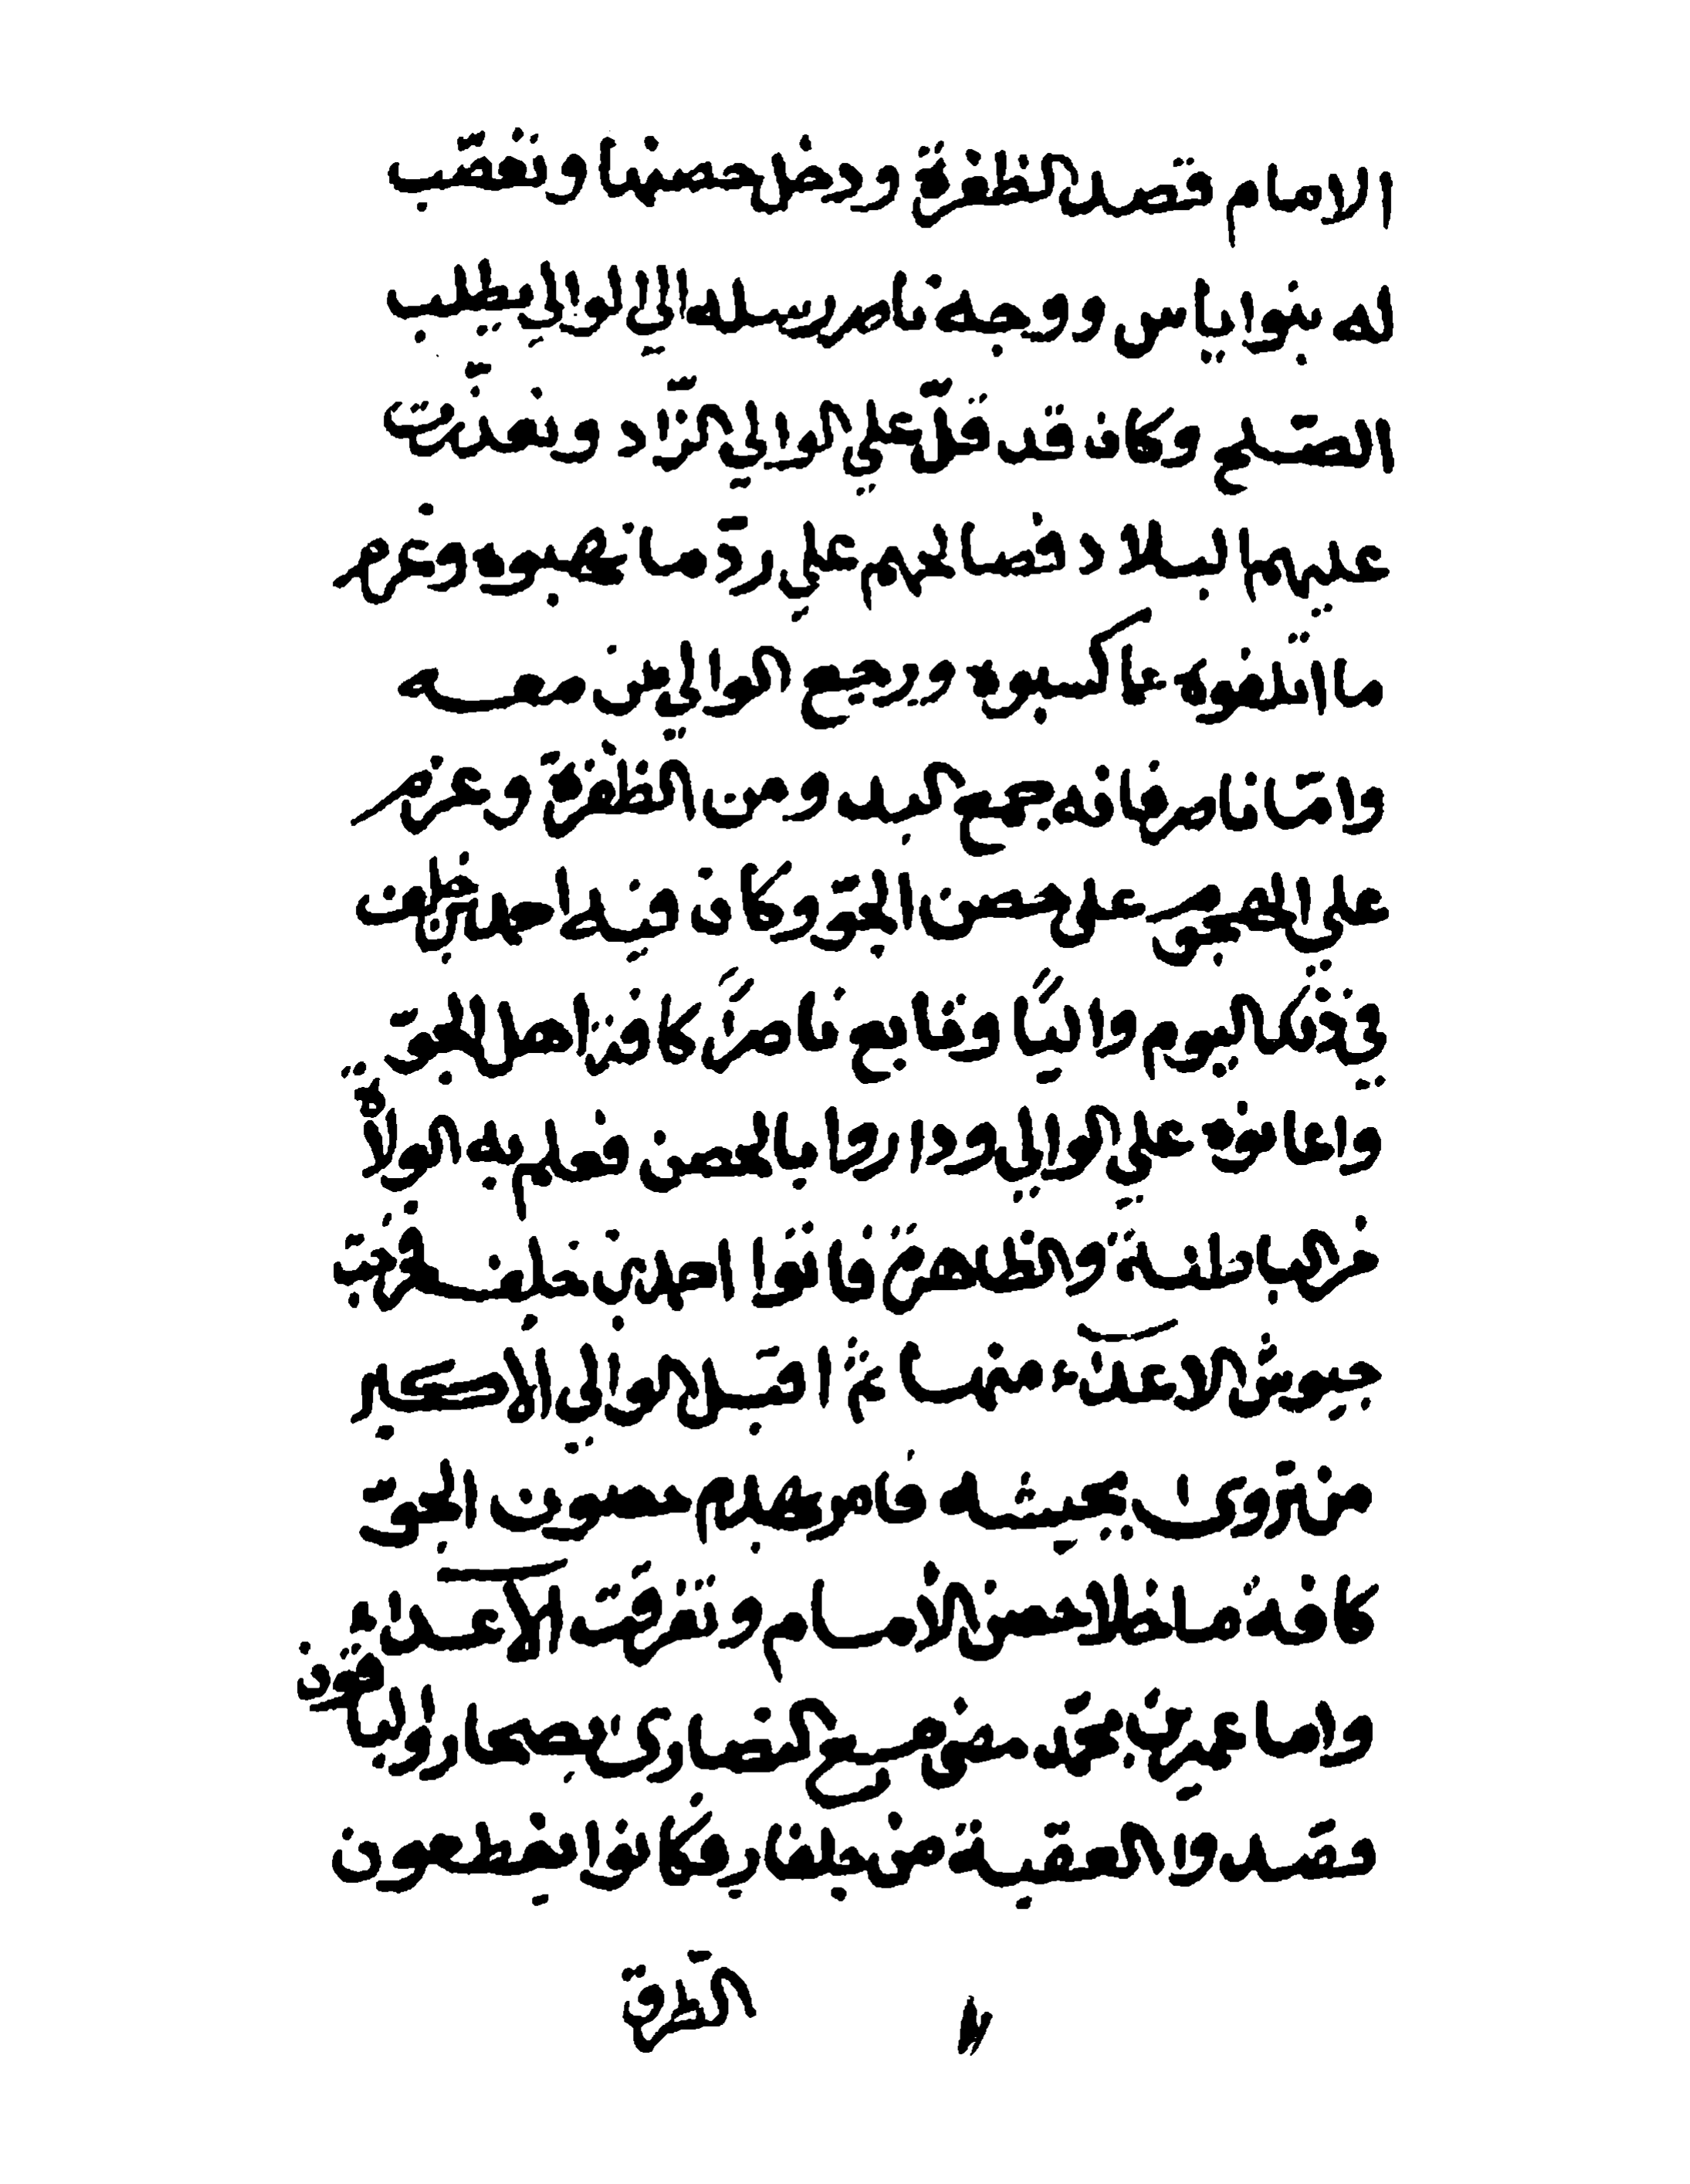 الامام قصد الظفرة ودخل حصنها وتعصّب
له بنوا ياس ووجه ناصر رسله الي الوالي يطلب
الصّلح وكان قد قلّ علي الوالي الزّاد وتعذّرت
عليهم البلاد فصالحهم علي ردّ ما نهبوه وغرم
ما اتلفوه مما كسبوه ورجع الوالي من معه
وامّا ناصر فانه جمع البدو من الظفرة وعزم
علي الهجوم على حصن الجوّ وكان فيه احمد بن خلف
في ذلك اليوم واليًا وتابع ناصرًا كافة اهل الجوّ
واعانوه علي الوالي وداروا بالحصن فعلم به الولاة
من الباطنة والظاهرة فاتوا احمد بن خلف فخرجت
جيوش الاعدآء منها ثم اقبل الوالي الاكبر
من نزوى بجيشه فامر بهدم حصون الجوّ
كافة ما خلا حصن الأمام وتفرقت الاعداء
واما عمير بن محمّد مضى مع النصارى بصحار والباقون
قصدوا العقبة من جلفار وكانوا يقطعون
الطّرق